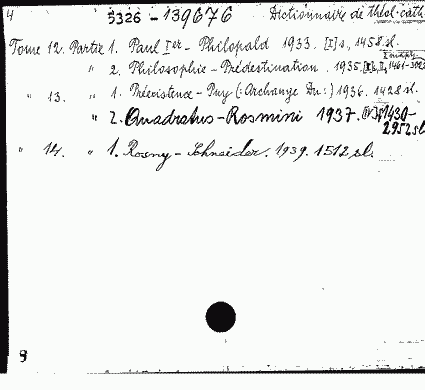 4 5326 - 139676 Dictionnaire de théol. cath.
Tome 12. Partie 1. Paul Ier - Philopald 1933. [I]s., 1458 sl.
" 2. Philosophie - Prédestination. 1935.
" 13. " 1. Préexistence - Puy (: Archange Du :) 1936. 1428 sl.
" 2. Quadratus - Rosmini 1937. 1430-
2952 sl.
" 14. " 1. Rosny - Schneider. 1939. 1512 sl.
9